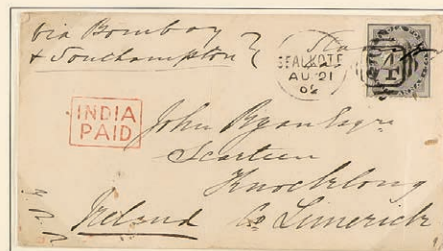 via Bombay
& Southampton
SEALKOTE
AU 21
INDIA
PAID
John Ryan Esqre
Scarteen
Knocklong
Ireland Co Limerick